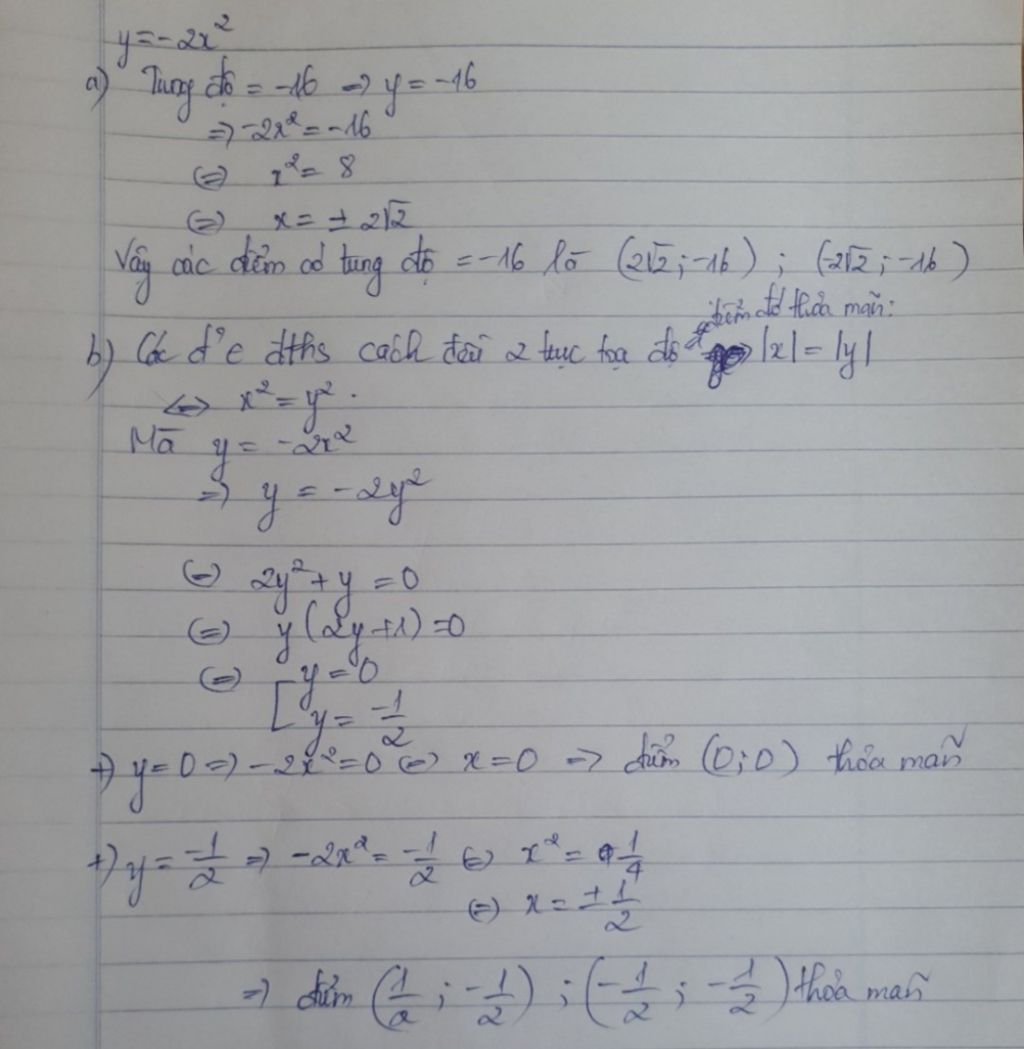 y = -2x²
a) Tung độ = -16 => y = -16
=> -2x² = -16
(=) x² = 8
(=) x = ± 2√2
Vậy các điểm có tung độ = -16 là (2√2 ; -16) ; (-2√2 ; -16)
điểm đó thỏa mãn:
b) Các đ' ∈ đths cách đều 2 trục tọa độ => |x| = |y|
<=> x² = y².
Mà y = -2x²
=> y = -2y²
(=) 2y² + y = 0
(=) y(2y+1) = 0
(=) [ y = 0
y = -1/2
+) y = 0 => -2x² = 0 (=) x = 0 => điểm (0;0) thỏa mãn
+) y = -1/2 => -2x² = -1/2 (=) x² = 1/4
(=) x = ± 1/2
=> điểm (1/2 ; -1/2) ; (-1/2 ; -1/2) thỏa mãn